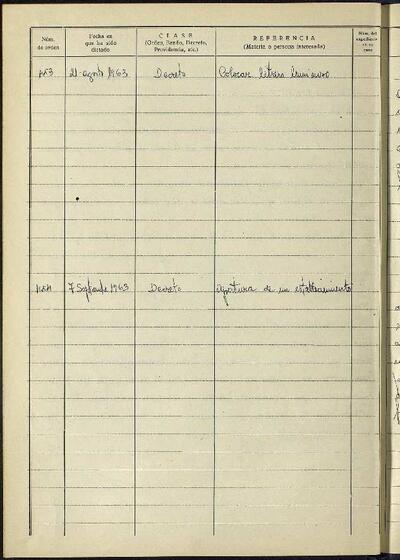 Núm. de orden
Fecha en que ha sido dictado
CLASE
(Orden, Bando, Decreto, Providencia, etc.)
REFERENCIA
(Materia o persona interesada)
Núm. del expediente en su caso
21 agosto 1963 Decreto Colocar letrero luminoso
7 Septiembre 1963 Decreto Apertura de un establecimiento